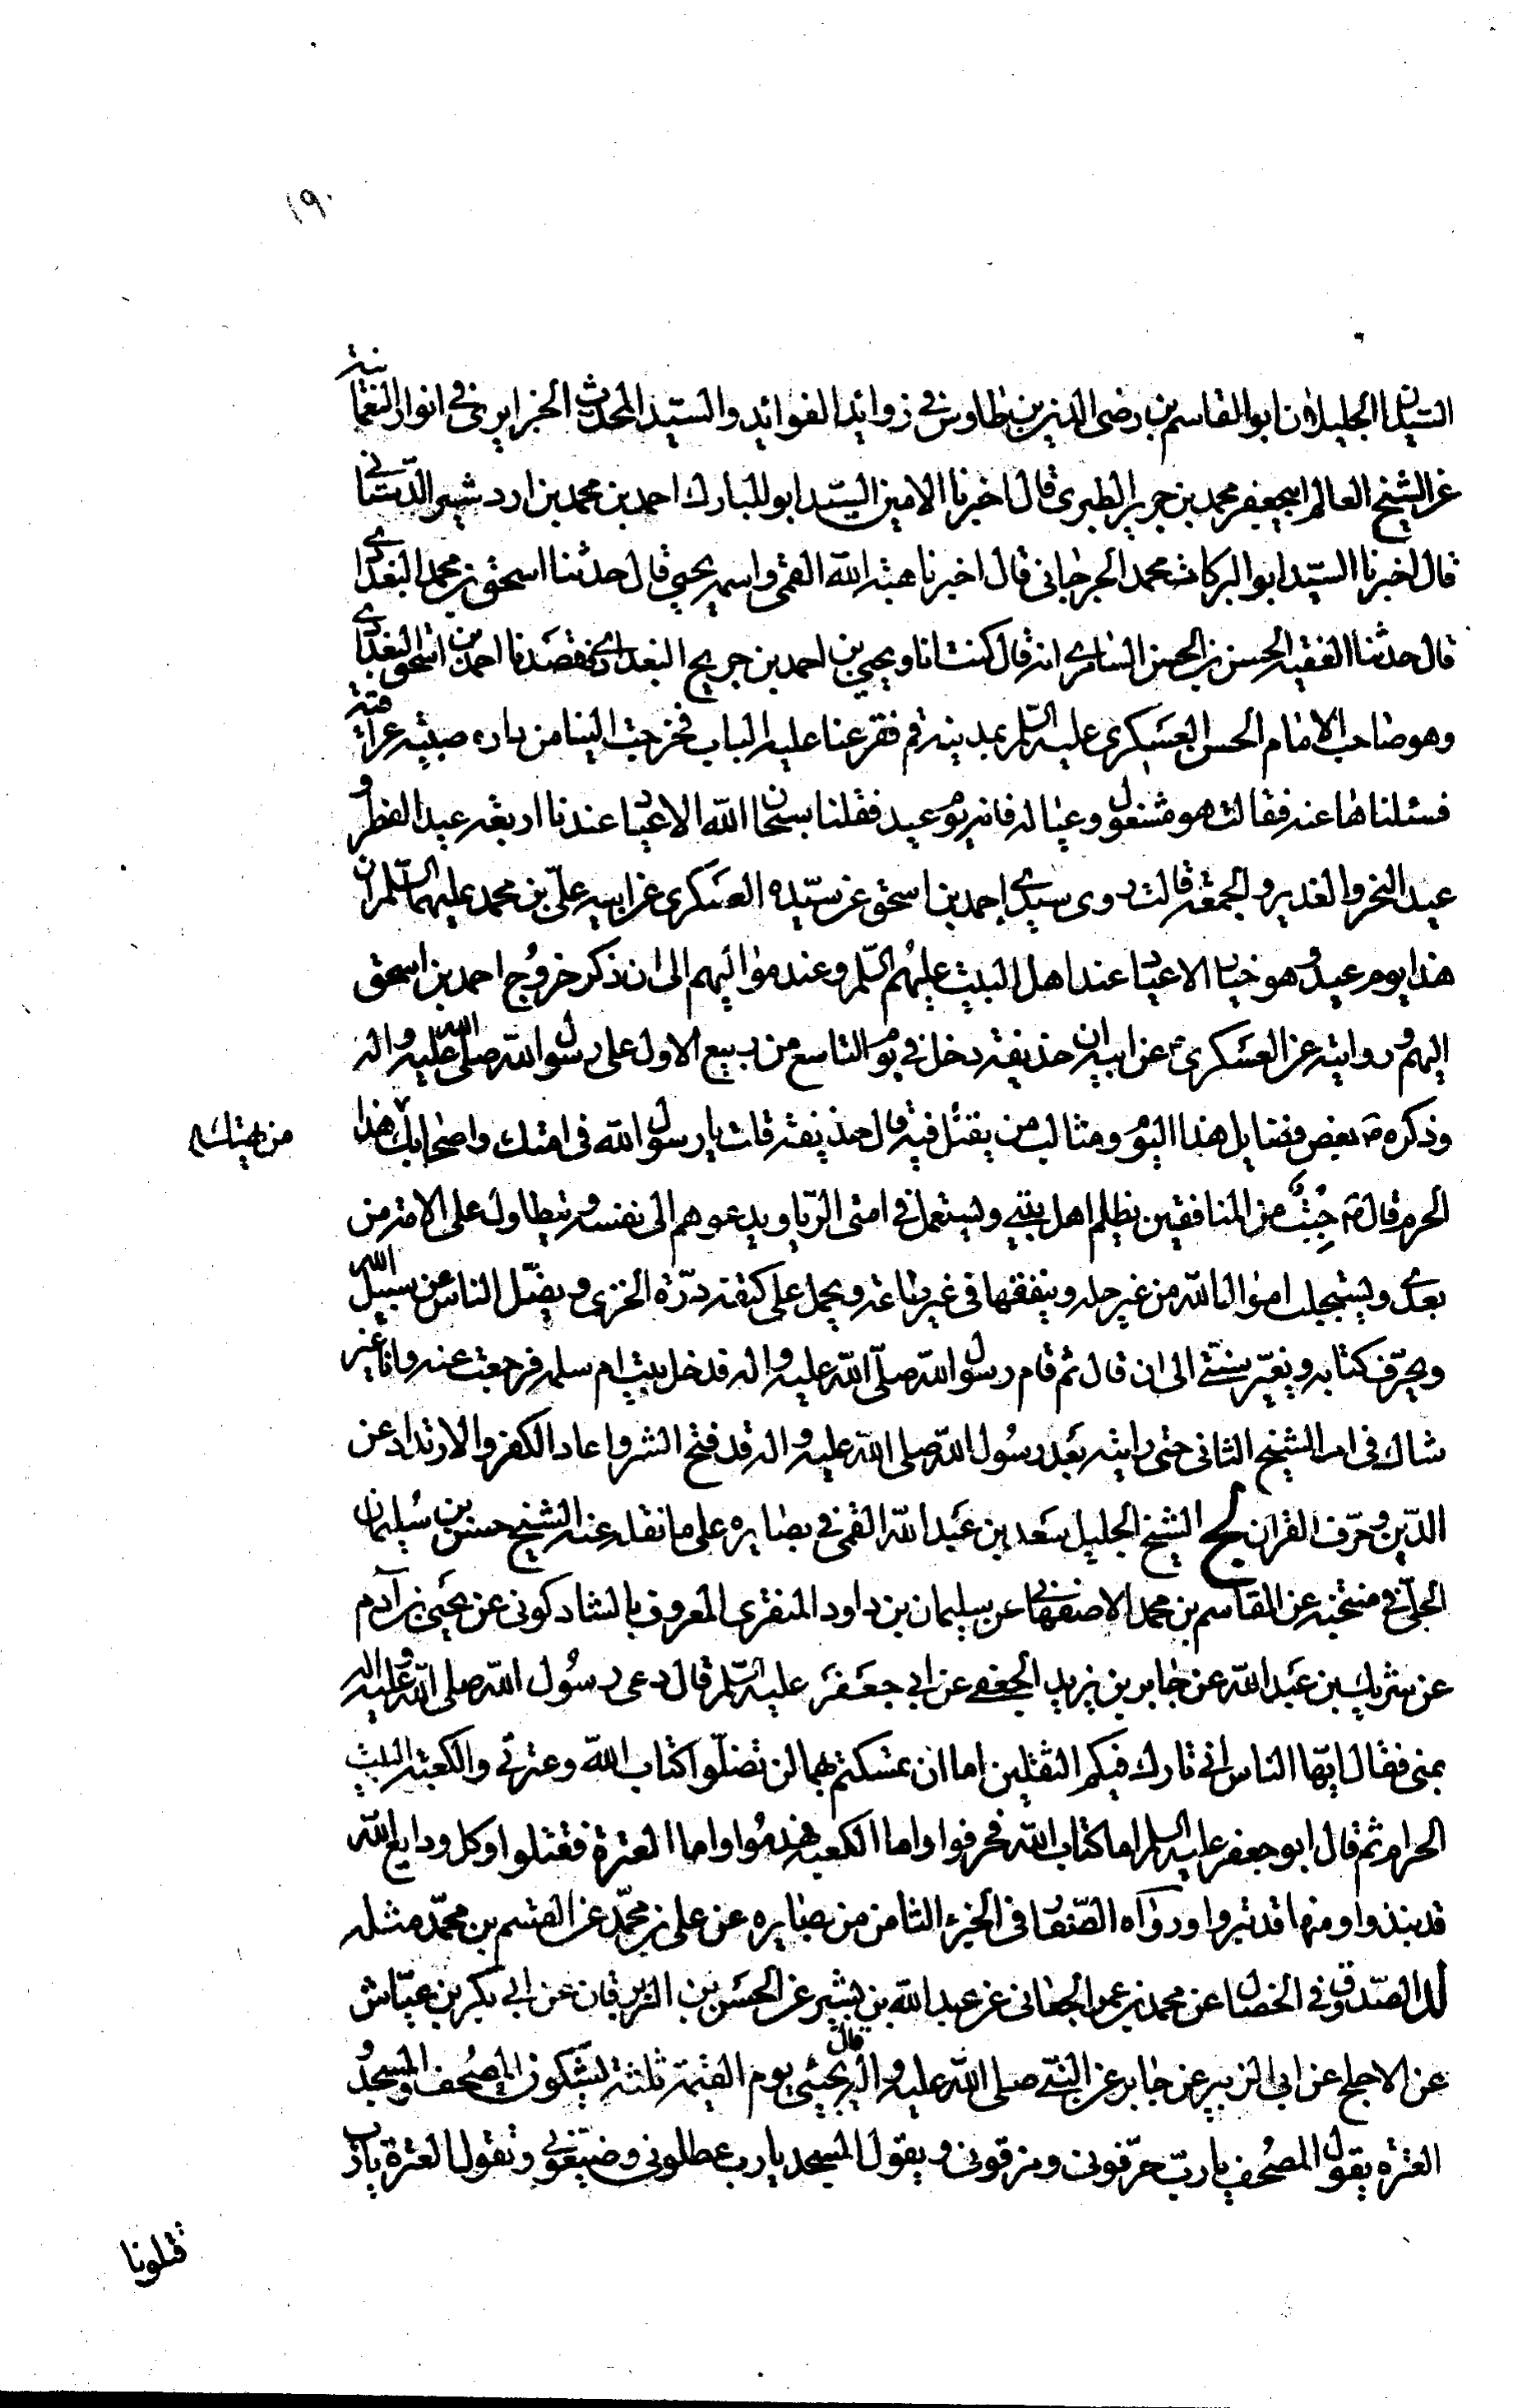 ١٩٠
السيدان الجليلان ابو القاسم بن رضى الدين بن طاوس في زوائد الفوائد والسيد المحدث الجزايرى في انوار النعمانية
عن الشيخ العالم ابيجعفر محمد بن جرير الطبرى قال اخبرنا الامين السيد ابو المبارك احمد بن محمد بن اردشير الدستانى
قال اخبرنا السيد ابو البركات محمد الجرجانى قال اخبرنا هبة الله القمى واسمه يحيى قال حدثنا اسحق بن محمد البغدادى
قال حدثنا الفقيه الحسن بن الحسن السامرى انه قال كنت انا ويحيى بن احمد بن جريح البغدادى فقصدنا احمد بن اسحق البغدادى
وهو صاحب الامام الحسن العسكرى عليه السلم بمدينة قم فقرعنا عليه الباب فخرجت الينا من داره صبيته عراقية
فسئلناها عنه فقالت هو مشغول وعياله فانه يوم عيد فقلنا سبحان الله الاعياد عندنا اربعة عيد الفطر و
عيد النحر والغدير والجمعة قالت روى سيدى احمد بن اسحق عن سيده العسكرى عن ابيه على بن محمد عليهما السلم ان
هذا يوم عيد وهو خيار الاعياد عند اهل البيت عليهم السلم وعند مواليهم الى ان ذكر خروج احمد بن اسحق
اليهم وروايته عن العسكرى ع عن ابيه ان حذيفة دخل في يوم التاسع من ربيع الاول على رسول الله صلى الله عليه واله
وذكره ص بعض فضايل هذا اليوم ومثالب من يقتل فيه قال حذيفة قلت يا رسول الله فى امتك واصحابك هذا
من يهتك
الحرم قال ص جبت من المنافقين يظلم اهل بيتى ويستعمل في امتى الربا ويدعوهم الى نفسه ويتطاول على الامة من
بعدى ويستجلب اموال الله من غير حله وينفقها فى غير طاعته ويحمل على كتفه درة الخزى ويضل الناس عن سبيل الله
ويحرف كتابه ويغير سنتى الى ان قال ثم قام رسول الله صلى الله عليه واله فدخل بيت ام سلمه فرجعت عنه وانا غير
شاك فى امر الشيخ الثانى حتى رايته بعد رسول الله صلى الله عليه واله قد فتح الشر واعاد الكفر والارتداد عن
الدين وحرف القران لح الشيخ الجليل سعد بن عبد الله القمى في بصايره على ما نقله عنه الشيخ حسن بن سليمان
الحلى في منتخبه عن القاسم بن محمد الاصفهانى عن سليمان بن داود المنقرى المعروف بالشادكونى عن يحيى بن آدم
عن شريك بن عبد الله عن جابر بن يزيد الجعفى عن ابى جعفر عليه السلم قال دعى رسول الله صلى الله عليه واله
بمنى فقال ايها الناس انى تارك فيكم الثقلين اما ان تمسكتم بهما لن تضلوا كتاب الله وعترتى والكعبة البيت
الحرام ثم قال ابو جعفر عليه السلم اما كتاب الله فحرفوا واما الكعبة فهدموا واما العترة فقتلوا وكل ودايع الله
قد نبذوا ومنها قد تبروا ورواه الصفار في الجزء الثامن من بصايره عن على بن محمد عن القسم بن محمد مثله
لد الصدوق في الخصال عن محمد بن عمر الجعابى عن عبد الله بن بشير عن الحسن بن الزبرقان عن ابى بكر بن عياش
عن الاجلح عن ابى الزبير عن جابر عن النبى صلى الله عليه واله قال يجيئى يوم القيمة ثلثة يشكون المصحف والمسجد و
العترة يقول المصحف يا رب حرفونى ومزقونى ويقول المسجد يا رب عطلونى وضيعونى وتقول العترة يا رب
قتلونا